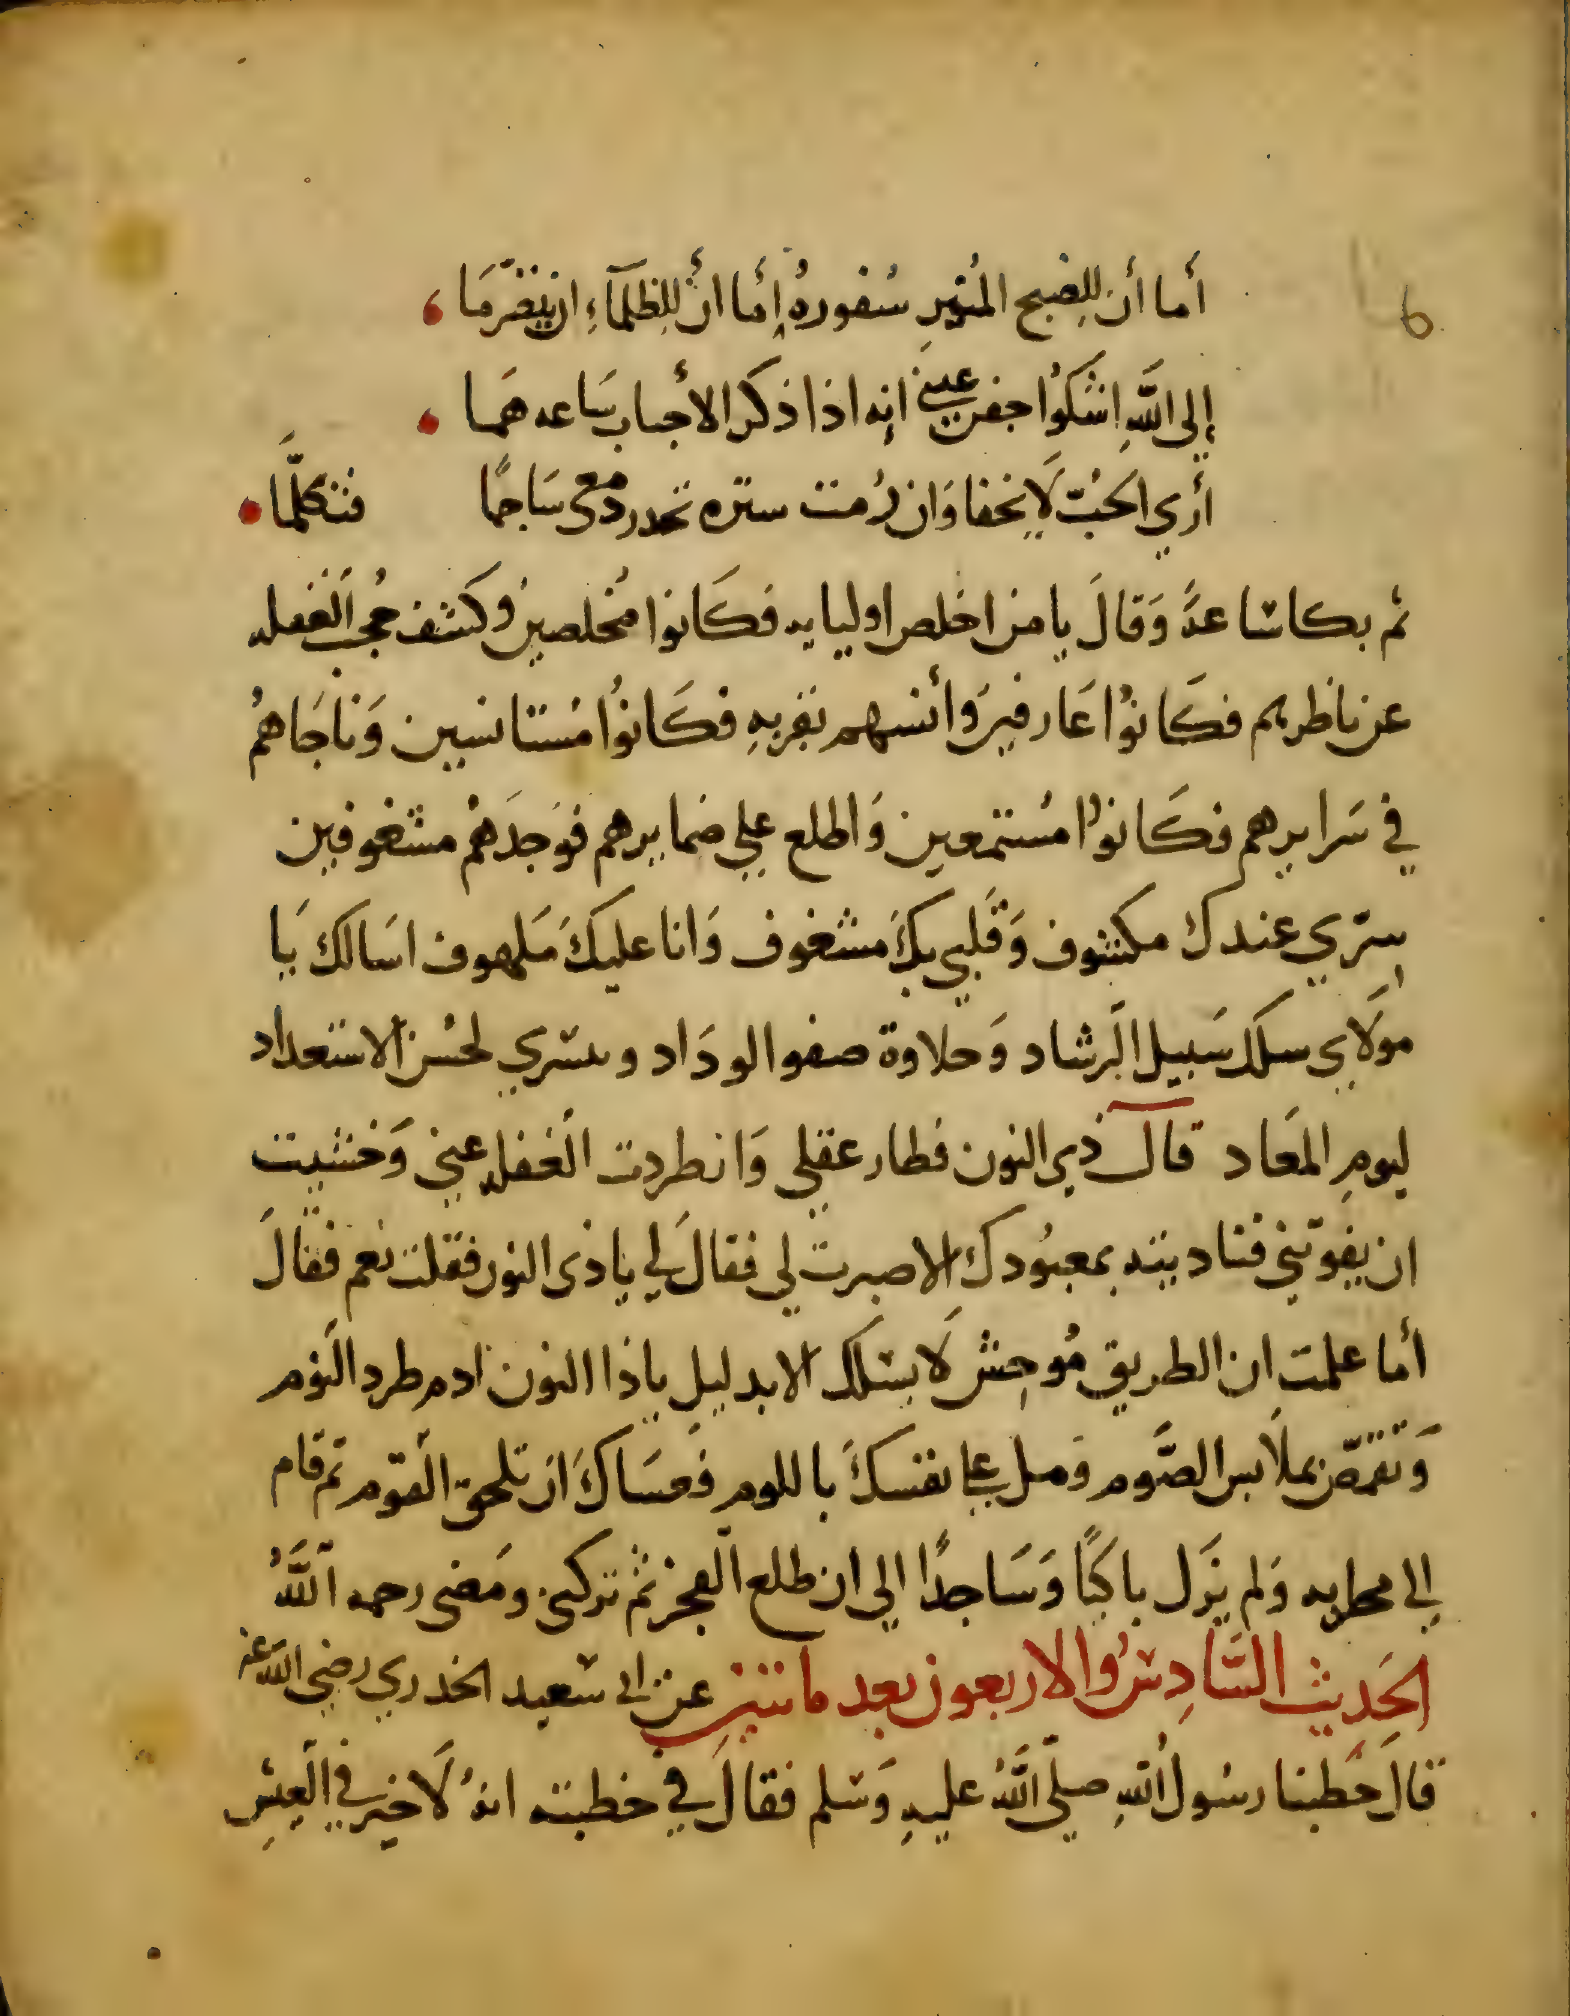 أما أن للصبح المُنِيرِ سُفورهُ أما أن للِظلمآءِ ان يتصرّمَا
إلى اللَّهِ اشكوُا جفن عيني انه اذا ذكر الأحباب سَاعه هَما
أري الحُبّ لَا يخفا وَان رُمت ستره تحدر دمعي سَاجمًا فتكلَّما
ثم بكا ساعةً وَقالَ يا من اخلص اوليايه فكَانوا مُخلصين وكشف حُجب الغفله
عن ناظرهم فكَانوُا عَارفين وَأنسهم بقربهِ فكَانوُا مُستانسين وَناجَاهمُ
في سَرايرهم فكَانوُا مُستمعين وَاطلع علي ضمايرهم فوَجدَهمْ مشغوفين
سِرّي عندك مكشوف وَقَلبي بكَ مشغوف وَانا عليكَ مَلهوف اسَالك يَا
مولَاي سلك سَبيل الرشاد وَحلاوة صفو الودَاد ويسّري لحُسن الاستعداد
ليومِ المعَاد قال ذي النون فطار عقلي وَانطردت الغفله عني وَخشيت
ان يفوتني فناديته بمعبُودك الا صبرت لي فقالَ لي يا ذى النون فقلت نعم فقالَ
أما علمت ان الطريق مُوحِش لَا يسلك الا بدليل يا ذا النون ادم طرد النوم
وَتقمّص بملَابس الصَّوم وَمل علي نفسكَ باللوم فعسَاكَ ان تلحق القوم ثم قام
إلي محرابه وَلم يزَل باكيًا وَسَاجدًا الي ان طلع الفجر ثم تركني ومَضى رحمه اللَّهُ
الحَديث السَّادِسُ والاربعون بعد ماتين عن ابى سَعيد الخدري رضي اللَّه عنه
قالَ خَطبنا رسُول اللهِ صلّى اللَّهُ عليهِ وَسَلم فقالَ في خطبته انهُ لَا خيرَ في العيشِ